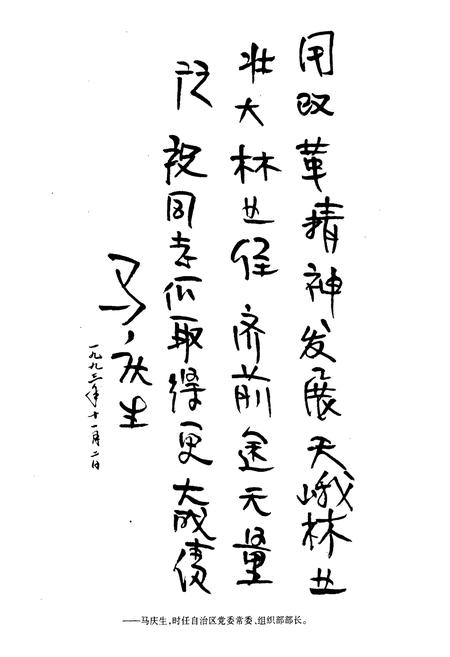 用改革精神发展天峨林业
壮大林业经济前途无量
祝同志们取得更大成绩
马庆生
一九九三年十一月二日
——马庆生,时任自治区党委常委、组织部部长。